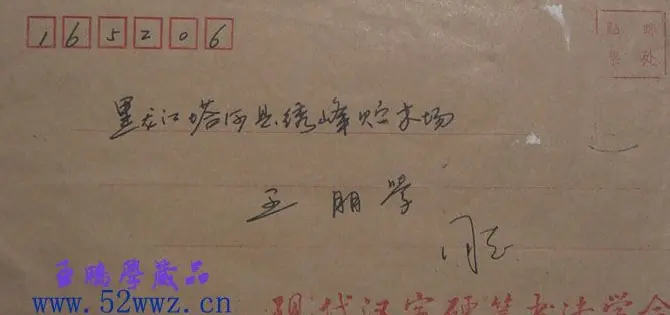 165206
贴邮
票处
黑龙江塔河县绣峰贮木场
王朋学
同志
王鹏學藏品
www.52wwz.cn
现代汉字硬笔书法学会